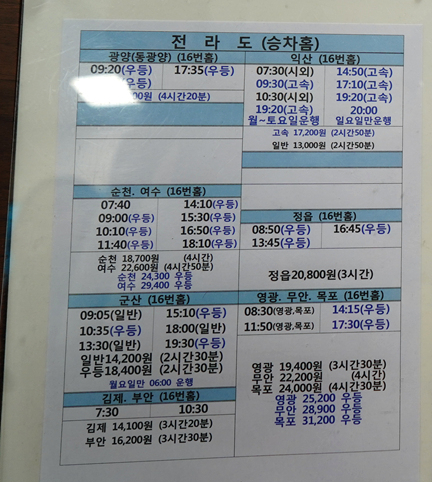 전 라 도 (승차홈)
광양(동광양) (16번홈)
09:20(우등) 17:35(우등)
(우등)
00원 (4시간20분)
익산 (16번홈)
07:30(시외) 14:50(고속)
09:30(고속) 17:10(고속)
10:30(시외) 19:20(고속)
19:20(고속) 20:00
월~토요일운행 일요일만운행
고속 17,200원 (2시간50분)
일반 13,000원 (2시간50분)
순천. 여수 (16번홈)
07:40 14:10(우등)
09:00(우등) 15:30(우등)
10:10(우등) 16:50(우등)
11:40(우등) 18:10(우등)
순천 18,700원 (4시간)
여수 22,600원 (4시간50분)
순천 24,300 우등
여수 29,400 우등
정읍 (16번홈)
08:50(우등) 16:45(우등)
13:45(우등)
정읍20,800원(3시간)
군산 (16번홈)
09:05(일반) 15:10(우등)
10:35(우등) 18:00(일반)
13:30(일반) 19:30(우등)
일반14,200원 (2시간30분)
우등18,400원 (2시간30분)
월요일만 06:00 운행
영광. 무안. 목포 (16번홈)
08:30(영광,목포) 14:15(우등)
11:50(영광,목포) 17:30(우등)
영광 19,400원 (3시간30분)
무안 22,200원 (4시간)
목포 24,000원 (4시간30분)
영광 25,200 우등
무안 28,900 우등
목포 31,200 우등
김제. 부안 (16번홈)
7:30 10:30
김제 14,100원 (3시간20분)
부안 16,200원 (3시간30분)